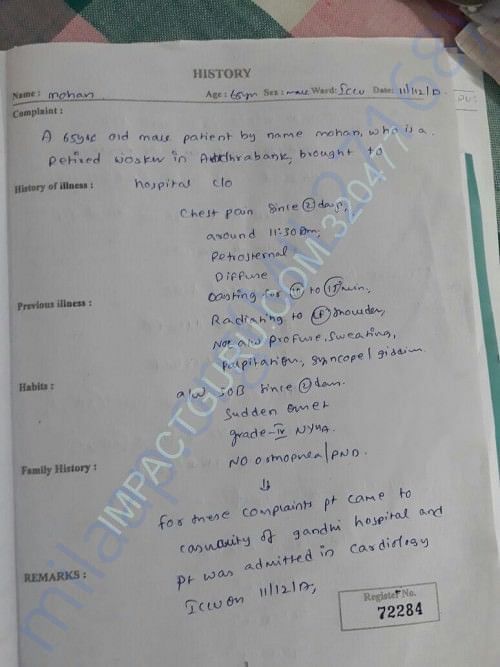 HISTORY
Name : mohan Age : 65yrs Sex : male Ward: ICCU Date: 11/12/17
Complaint :
A 65yrs old male patient by name mohan, who is a
retired worker in Andhrabank, brought to
History of illness : hospital c/o
chest pain since 2 days,
around 11:30 am,
Retrosternal
Diffuse
Lasting for 10 to 15 min,
Previous illness :
Radiating to Lt shoulder,
Not a/w profuse sweating,
palpitation, syncope / giddim
Habits :
a/w SOB since 2 days.
sudden onset
grade-IV NYHA.
Family History :
NO orthopnea / PND.
↓
for these complaints pt came to
casuality of gandhi hospital and
pt was admitted in cardiology
REMARKS :
ICCU on 11/12/17,
Register No.
72284
IMPACTGURU.COM.320477